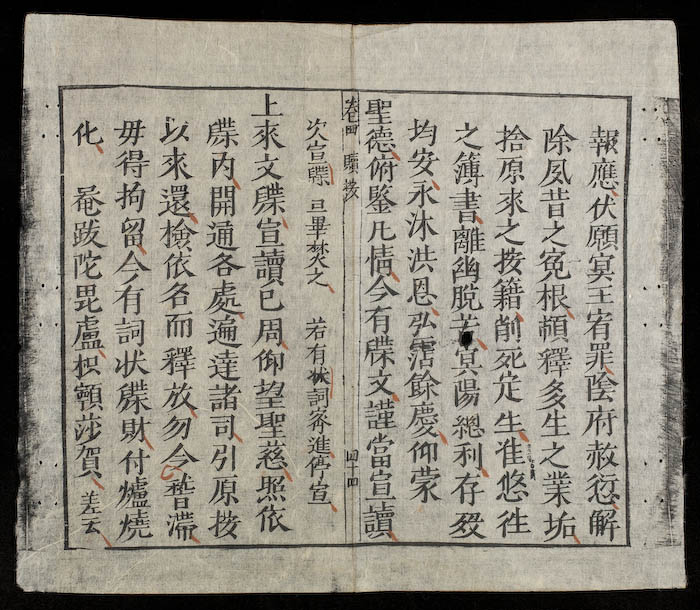 報應伏願冥王宥罪陰府赦愆解
除夙昔之冤根頓釋多生之業垢
拾原來之按籍削死定生准悠徃
之簿書離幽脫苦冥陽總利存歿
均安永沐洪恩弘霑餘慶仰蒙
聖德俯鑒凡情今有牒文謹當宣讀
卷四 牘按 四十四
次宣牒 旦畢焚之 若有狀詞寄進俻宣
上來文牒宣讀已周仰望聖慈照依
牒內開通各處遍達諸司引原按
以來還檢依各而釋放勿令暫滯
毋得拘留今有詞狀牒財付爐燒
化 菴跋陀毘盧枳顊莎賀 差云